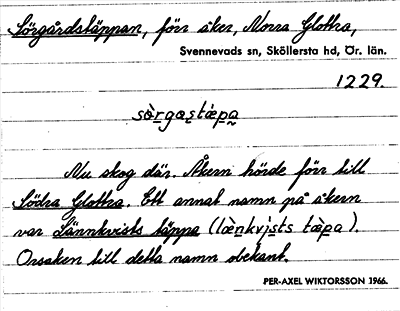 Sörgårdstäppan, förr åker, Norra Glottra,
Svennevads sn, Sköllersta hd, Ör. län.
1229.
sò̀rgastæpa
Nu skog där. Åkern hörde förr till
Södra Glottra. Ett annat namn på åkern
var Lännkvists täppa (læ̀nkvists tæ̀pa).
Orsaken till detta namn obekant.
PER-AXEL WIKTORSSON 1966.